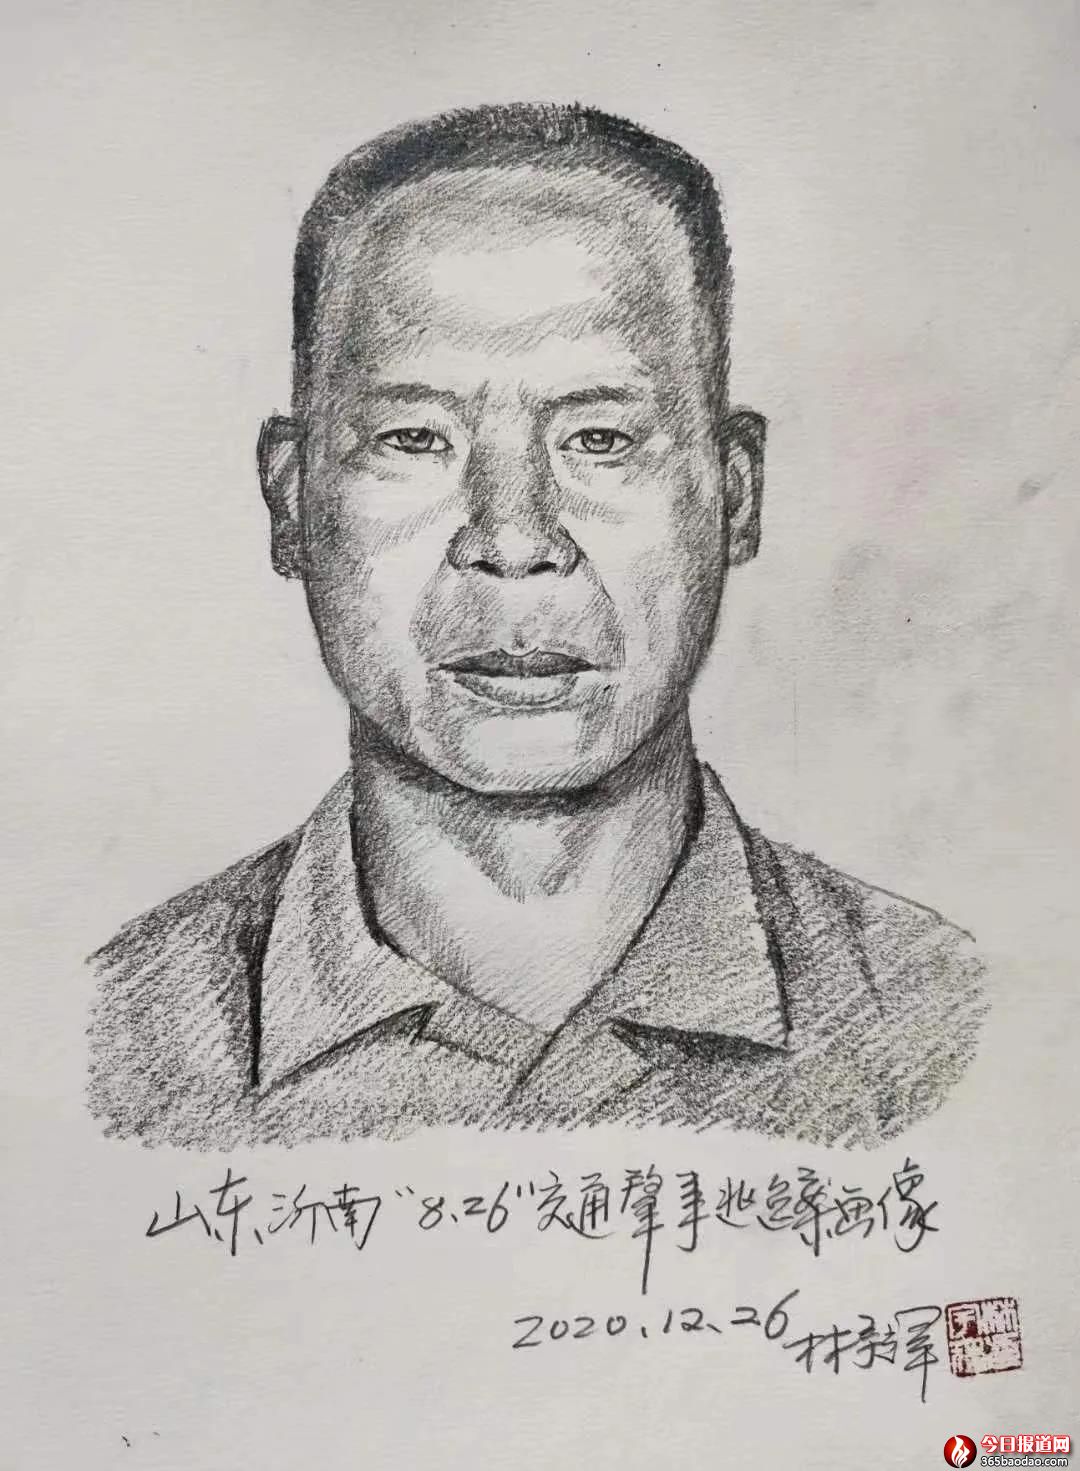 山东济南“8.26”交通肇事逃逸案画像
2020.12.26 林宇辉
林宇辉印
今日报道网
365baodao.com